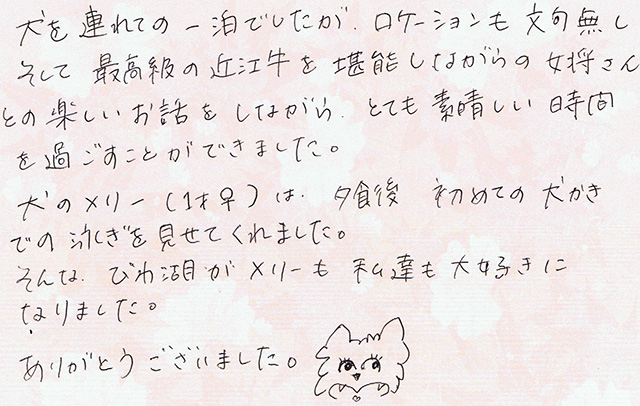 犬を連れての一泊でしたが、ロケーションも文句無し
そして最高級の近江牛を堪能しながらの女将さん
との楽しいお話をしながら、とても素晴しい時間
を過ごすことができました。
犬のメリー(1才♀)は、夕食後 初めての犬かき
での泳ぎを見せてくれました。
そんな、びわ湖がメリーも私達も大好きに
なりました。
ありがとうございました。